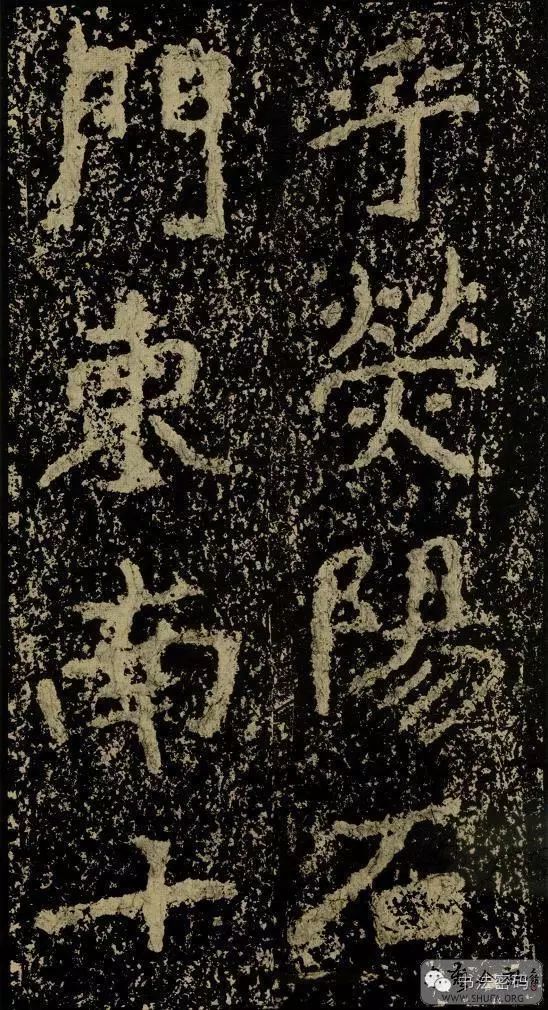 乎熒陽石
門東南十
书法密码
WWW.SHUFA.ORG